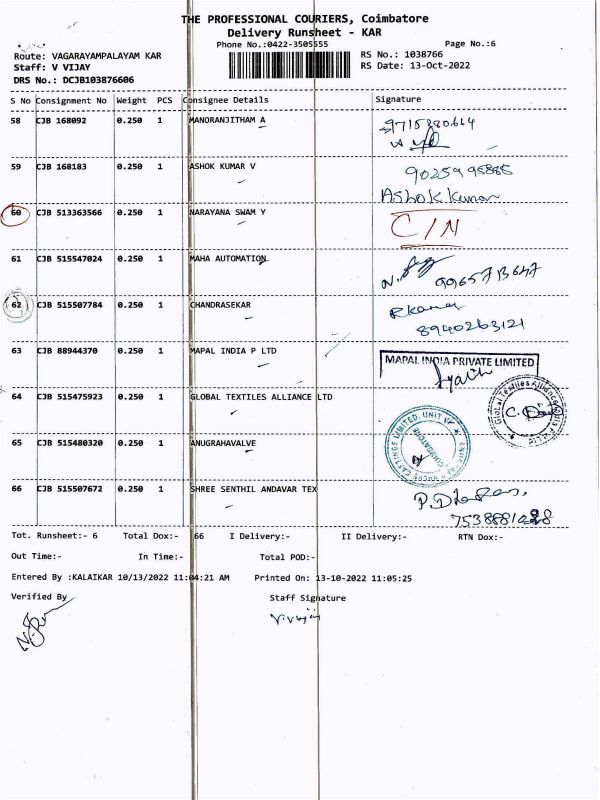 THE PROFESSIONAL COURIERS, Coimbatore
Delivery Runsheet - KAR
Phone No.:0422-3505555 Page No.:6
Route: VAGARAYAMPALAYAM KAR RS No.: 1038766
Staff: V VIJAY RS Date: 13-Oct-2022
DRS No.: DCJB103876606
S No Consignment No Weight PCS Consignee Details Signature
58 CJB 168092 0.250 1 MANORANJITHAM A 9715380614
59 CJB 168183 0.250 1 ASHOK KUMAR V
Ashok Kumar
60 CJB 513363566 0.250 1 NARAYANA SWAM Y C/N
61 CJB 515547024 0.250 1 MAHA AUTOMATION
62 CJB 515507784 0.250 1 CHANDRASEKAR
8940263121
63 CJB 88944370 0.250 1 MAPAL INDIA P LTD MAPAL INDIA PRIVATE LIMITED
64 CJB 515475923 0.250 1 GLOBAL TEXTILES ALLIANCE LTD
65 CJB 515480320 0.250 1 ANUGRAHAVALVE
66 CJB 515507672 0.250 1 SHREE SENTHIL ANDAVAR TEX
Tot. Runsheet:- 6 Total Dox:- 66 I Delivery:- II Delivery:- RTN Dox:-
Out Time:- In Time:- Total POD:-
Entered By :KALAIKAR 10/13/2022 11:04:21 AM Printed On: 13-10-2022 11:05:25
Verified By Staff Signature
V.Vijay